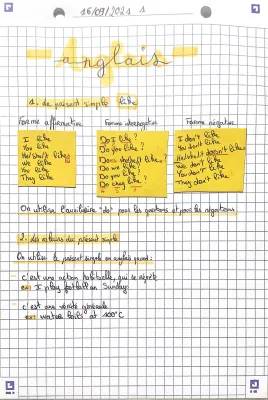 16/09/2021 1
Anglais
1. Le présent simple like
Forme affirmative Forme interrogative Forme négative
I like
You like
He/she/it likes
We like
You like
They like
Do I like ?
Do you like ?
Does she/he/it like ?
Do we like ?
Do you like ?
Do they like ?
I don't like
You don't like
He/she/it doesn't like
We don't like
You don't like
They don't like
On utilise l'auxiliaire "do" pour les questions et pour les négations
2. Les valeurs du présent simple
On utilise le présent simple en anglais quand :
c'est une action habituelle, qui se répète
ex: I play football on Sunday
c'est une vérité générale
ex: water boils at 100°C